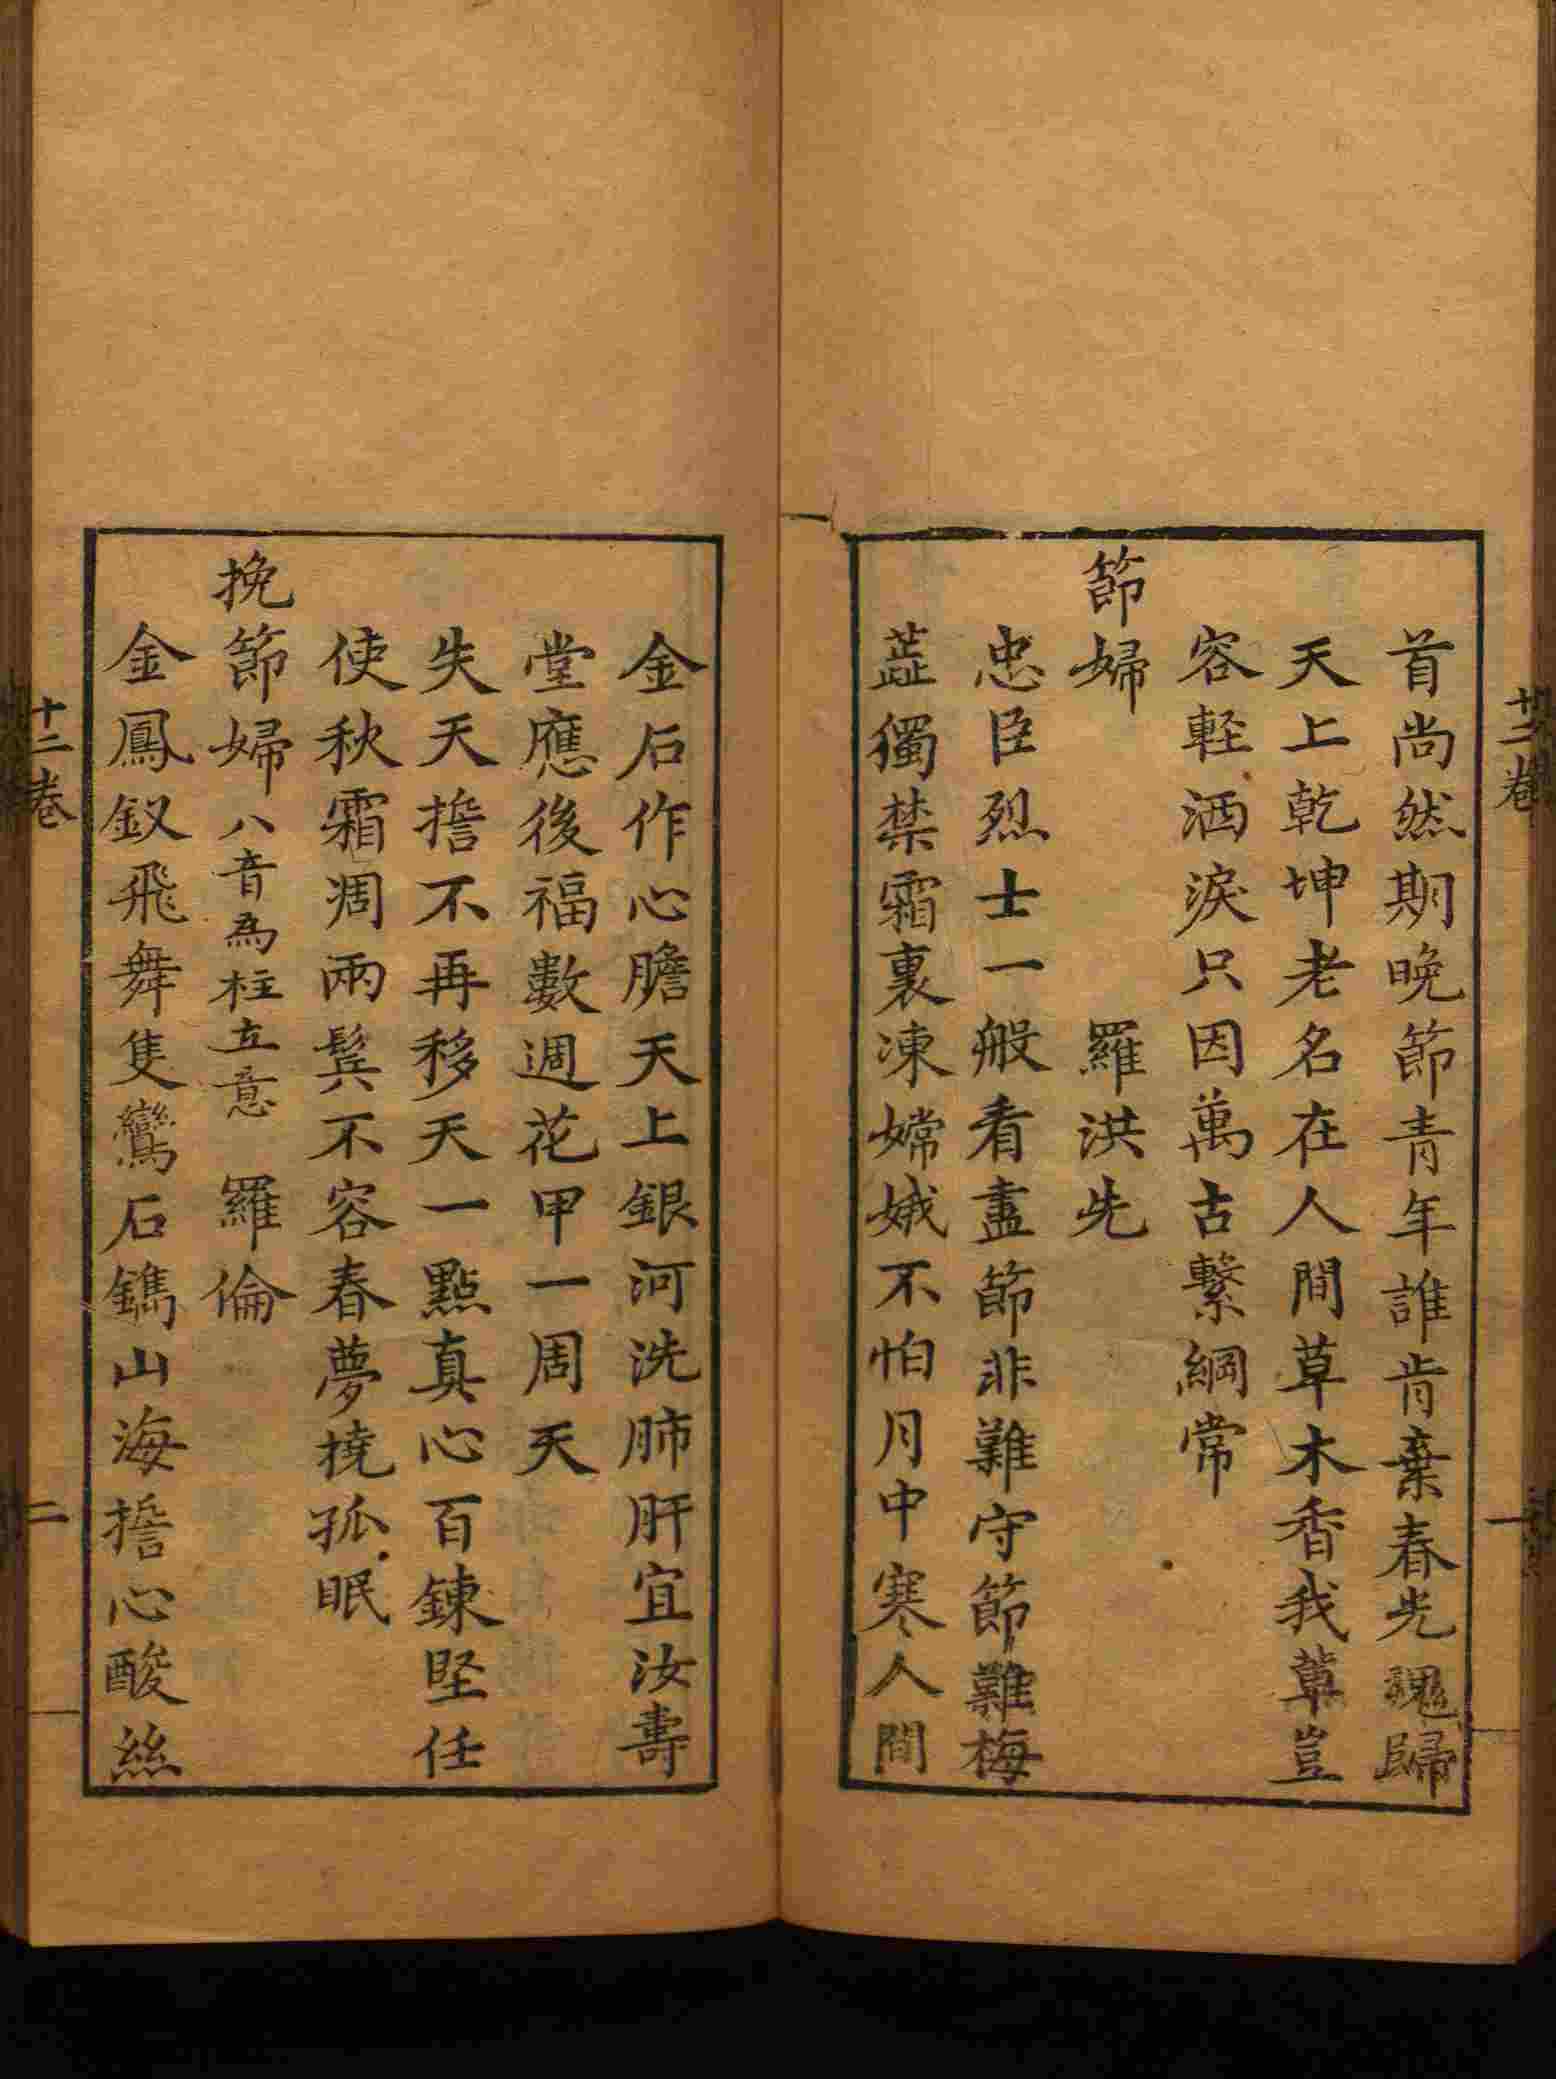 首尚然期晚節青年誰肯棄春光魂歸
天上乾坤老名在人間草木香我輩豈
容輕洒淚只因萬古繫綱常
節婦　　　羅洪先
忠臣烈士一般看盡節非難守節難梅
蕋獨禁霜裏凍嫦娥不怕月中寒人間
金石作心膽天上銀河洗肺肝宜汝壽
堂應後福數週花甲一周天
失天擔不再移天一點真心百鍊堅任
使秋霜凋兩鬂不容春夢撓孤眠
挽節婦八音為柱立意　羅倫
金鳳釵飛舞隻鸞石鐫山海擔心酸絲
十二卷
一
十二卷
二